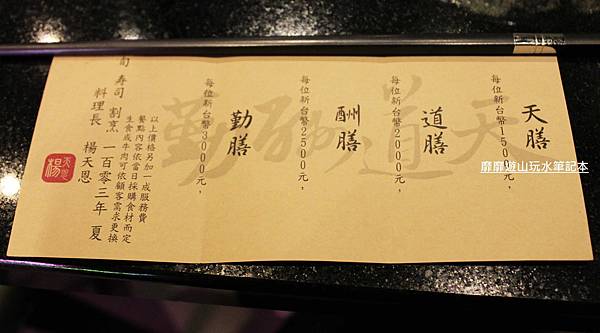 天膳
每位新台幣1500元，
道膳
每位新台幣2000元，
酬膳
每位新台幣2500元，
勤膳
每位新台幣3000元，
以上價格另加一成服務費
餐點內容依當日採購食材而定
生食或牛肉可依顧客需求更換
旬 壽司 割烹 一百零三年 夏
料理長 楊天恩
天恩
楊
天道酬勤
靡靡遊山玩水筆記本